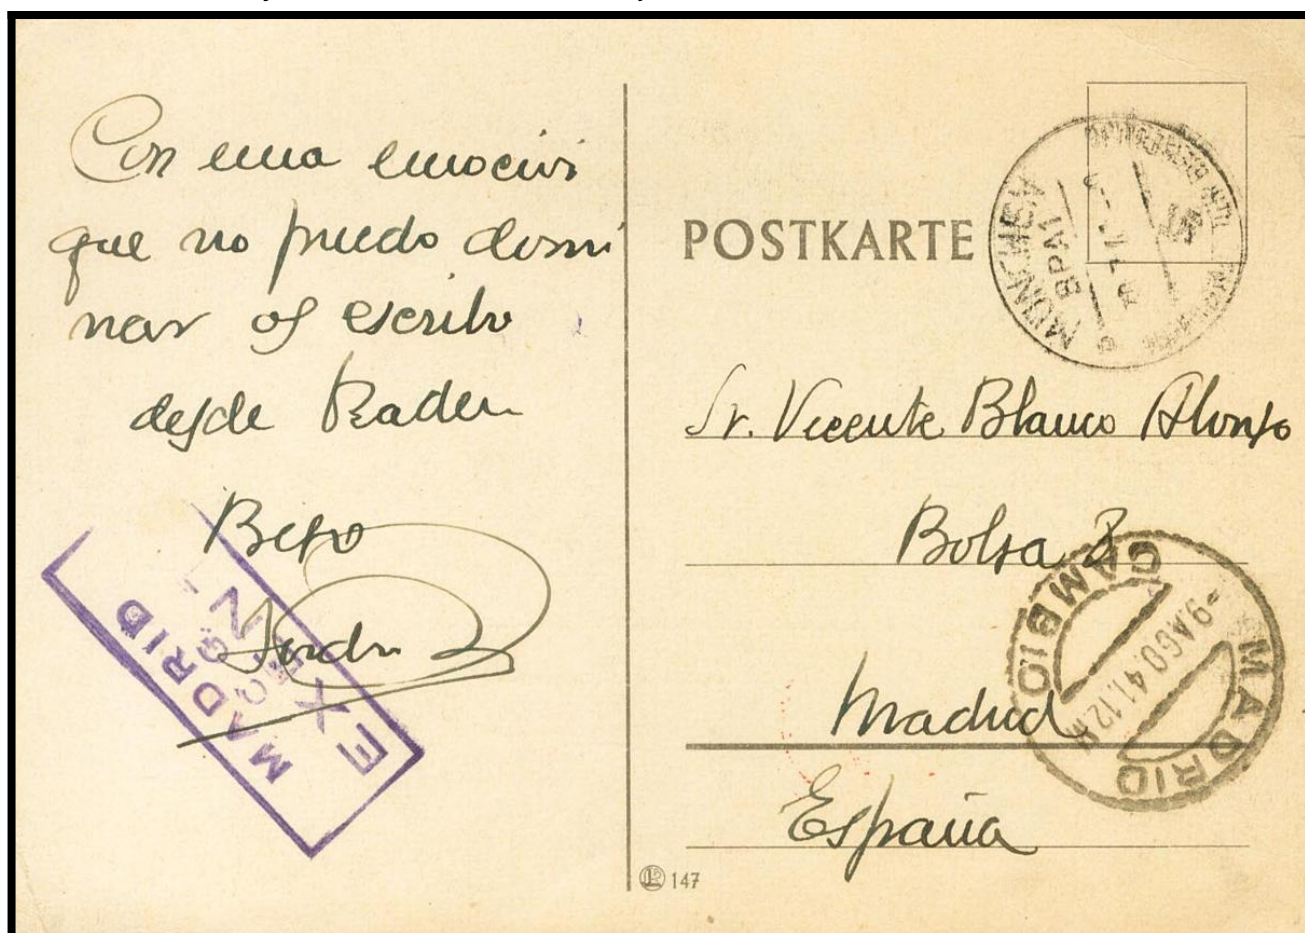 Con una emoción
que no puedo domi
nar os escribo
desde Baden
POSTKARTE
MÜNCHEN
Sr. Vicente Blanco Alonso
Bolsa
Madrid
España
MADRID
CAMBIO
-9 AGO.41.12M
MADRID
147